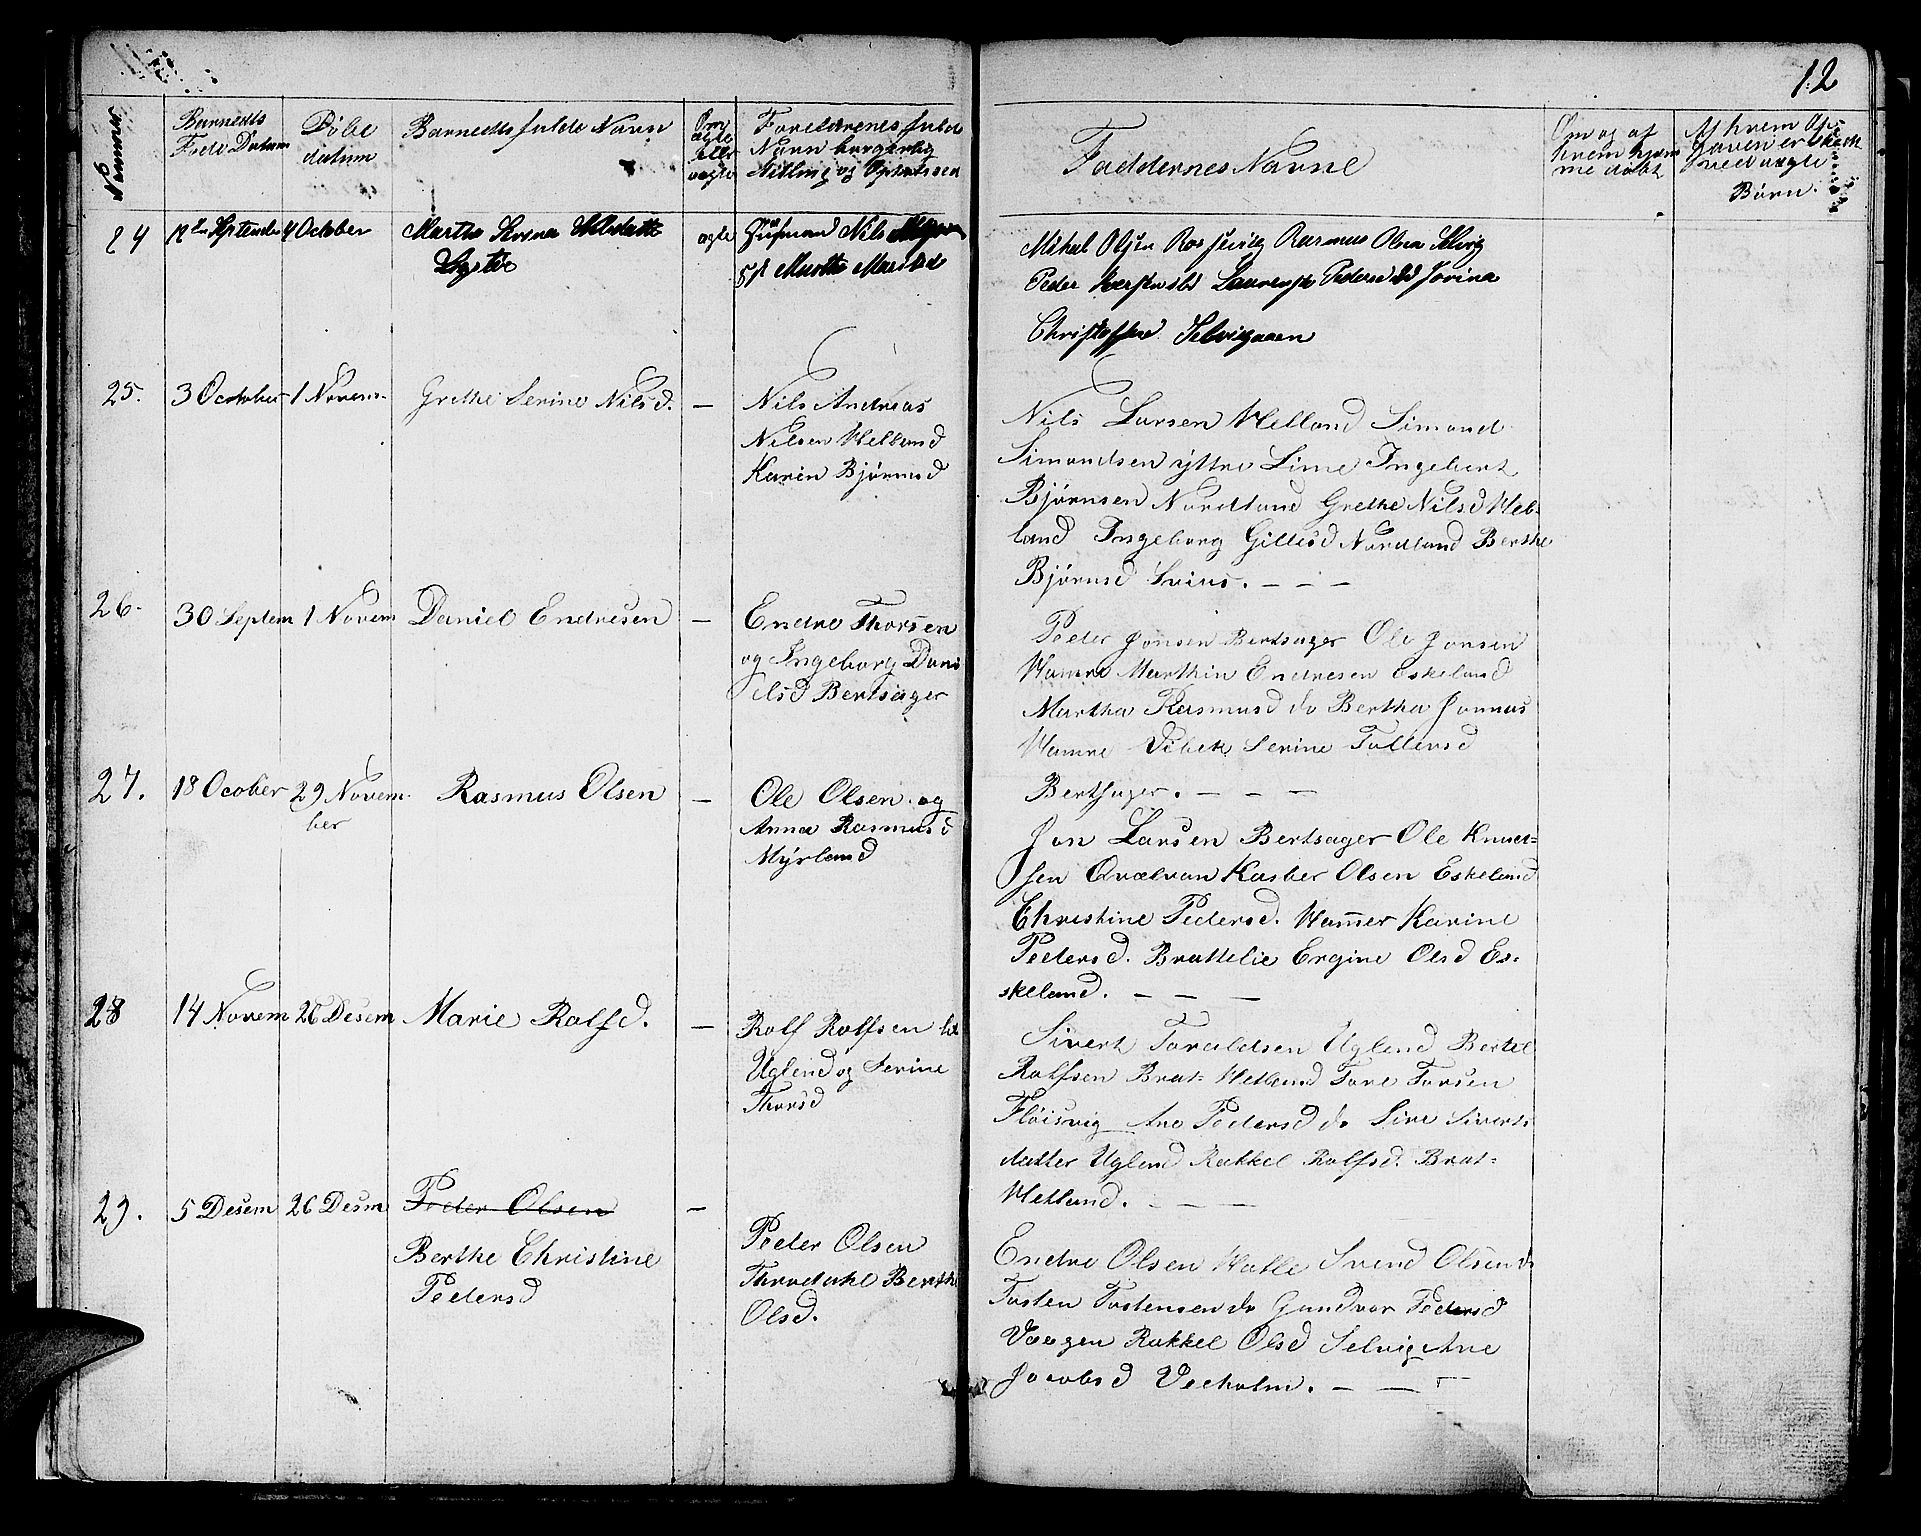 12
Nummer
Barnedts Føde Datum
Døbe datum
Barnedts fulde Navn
Om ægte eller uægte
Forældrenes fulde Navn borgerlig Stilling og Opholdssted
Faddernes Navne
Om og af hvem hjemme døbt
Af hvem Opgaven er skeet ved uægte Børn.
24
September 4 October
Martha
ægte
Nils
Martha
Mikal Olsen Rasmus Olsen Selvig
Peder Laurense Pedersd Jorina
Christoffersd Selvigaaen
25.
3 October
1 Novem
Grethe Serine Nilsd.
—
Nils Andreas
Nilsen Helland
Karen Bjørnsd
Nils Larsen Helland Simond
Simondsen yttre Lime Ingebert
Bjørnsen Nordland Grethe Nilsd Hel-
land Ingeborg Gittlesd Nordland Berthe
Bjørnsd
26.
30 Septem
1 Novem
Daniel Endresen
—
Endre Thorsen
og Ingeborg Dani
elsd Bertsager
Peder Jonsen Bertsager Ole Jonsen
Hamre Marthin Endresen Eskeland
Martha Rasmusd do Bertha Jonnas
Hamre Vibek Serine Tollersd
Bertsager. — — —
27.
18 Ocober
29 Novem
ber
Rasmus Olsen
—
Ole Olsen og
Anna Rasmusd
Myrland
Jon Larsen Bertsager Ole Knudt-
sen Qvælvan Kasber Olsen Eskeland
Christine Pedersd. Hamer Karine
Pedersd. Brattelie Ergine Olsd Es-
keland. — — —
28
14 Novem
26 Desem
Marie Rolfsd.
—
Rolf Rolfsen
Uglend og Serine
Thorsd
Sivert Toraldsen Uglend Bertel
Rolfsen Brat-Hetland Tore Torsen
Fløisvig Ane Pedersd do Sire Siverts
datter Uglend Rakkel Rolfsd. Brat-
Hetland. — — —
29.
5 Desem
26 Desm
Peder Olsen
Berthe Christine
Pedersd
—
Peder Olsen
Throdahl Berthe
Olsd.
Endre Olsen Hatle Svend Olsen do
Tosten Tostensen do Gundvor Pedersd
Vaagen Rakkel Olsd Selvig Ane
Jacobsd Veeholm. — — —